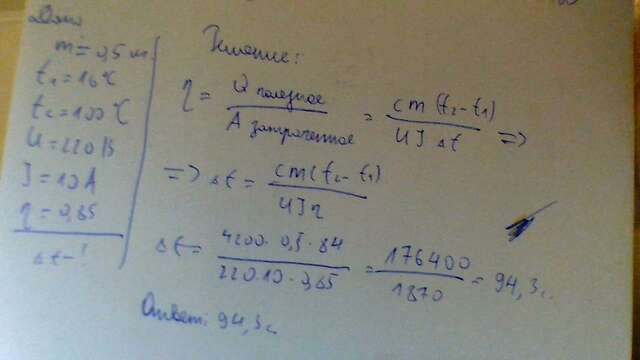 Дано
m = 0,5 кг
t₁ = 16°C
t₂ = 100°C
U = 220 В
I = 10 A
η = 0,85
Δt - ?
Решение:
η = Q полезное / A затраченное = cm(t₂ - t₁) / UI Δt =>
=> Δt = cm(t₂ - t₁) / UIη
Δt = 4200 · 0,5 · 84 / 220 · 10 · 0,85 = 176400 / 1870 = 94,3 с.
Ответ: 94,3 с